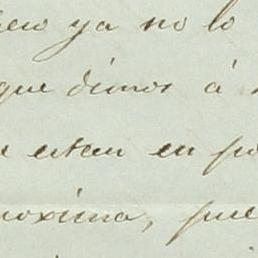 pero ya no lo
que dimos á
esten en po
proxima, pue